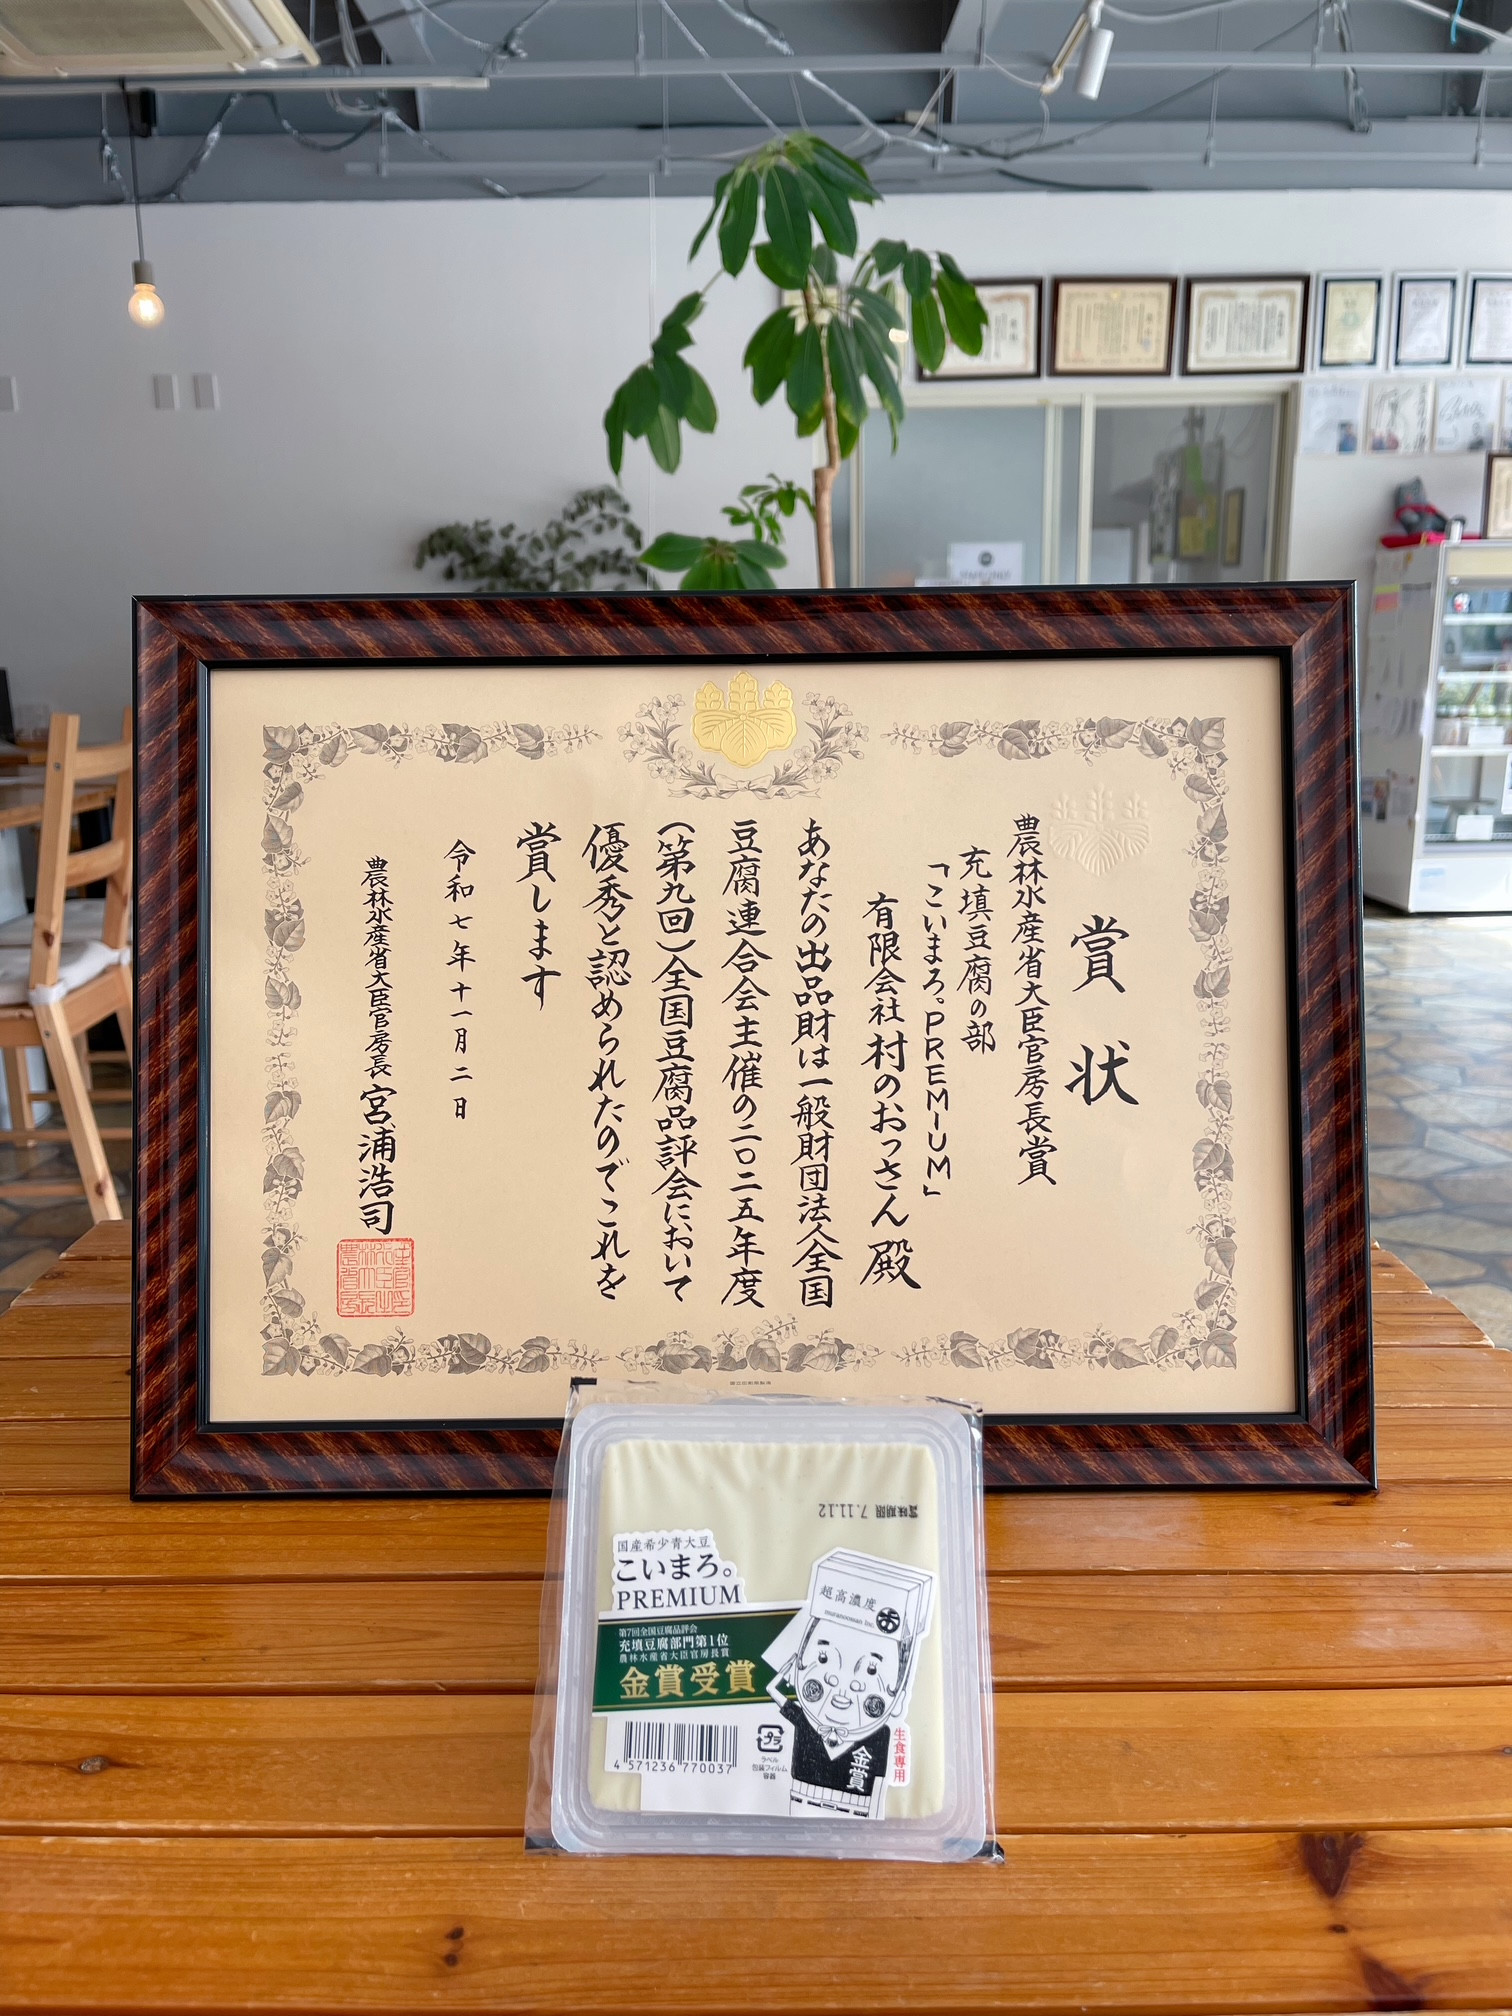 賞状
農林水産省大臣官房長賞
充填豆腐の部
「こいまろ。PREMIUM」
有限会社 村のおっさん 殿
あなたの出品財は一般財団法人全国
豆腐連合会主催の二〇二五年度
(第九回)全国豆腐品評会において
優秀と認められたのでこれを
賞します
令和七年十一月二日
農林水産省大臣官房長 宮浦浩司
賞味期限 7.11.12
国産希少青大豆
こいまろ。
PREMIUM
第7回全国豆腐品評会
充填豆腐部門第1位
農林水産省大臣官房長賞
金賞受賞
超高濃度
muranoossan Inc.
金賞
生食専用
4 571236 770037
プラ
ラベル
包装フィルム
容器